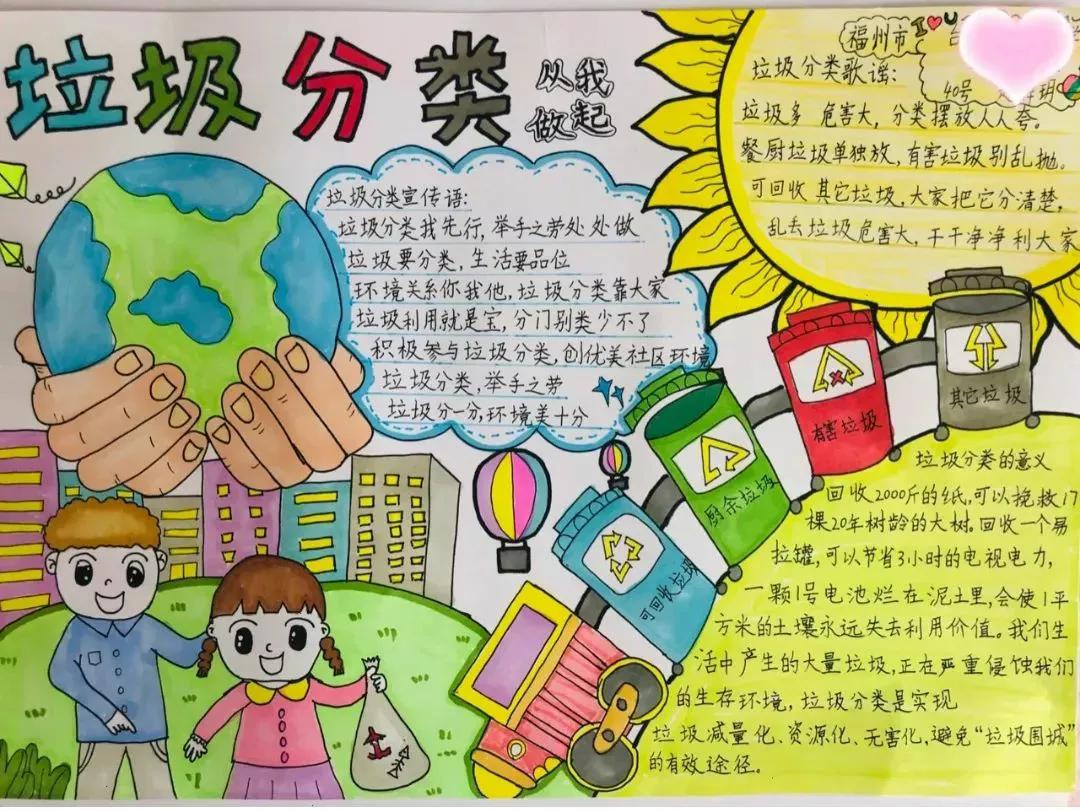 垃圾分类
从我
做起
垃圾分类宣传语:
垃圾分类我先行,举手之劳处处做
垃圾要分类,生活要品位
环境关系你我他,垃圾分类靠大家
垃圾利用就是宝,分门别类少不了
积极参与垃圾分类,创优美社区环境
垃圾分类,举手之劳
垃圾分一分,环境美十分
福州市
40号
玥
垃圾分类歌谣:
垃圾多 危害大,分类摆放人人夸。
餐厨垃圾单独放,有害垃圾别乱抛。
可回收其它垃圾,大家把它分清楚,
乱丢垃圾危害大,干干净净利大家
其它垃圾
有害垃圾
厨余垃圾
可回收垃圾
垃圾分类的意义
回收2000斤的纸,可以挽救17
棵20年树龄的大树。回收一个易
拉罐,可以节省3小时的电视电力,
一颗1号电池烂在泥土里,会使1平
方米的土壤永远失去利用价值。我们生
活中产生的大量垃圾,正在严重侵蚀我们
的生存环境,垃圾分类是实现
垃圾减量化、资源化、无害化,避免“垃圾围城”
的有效途径。